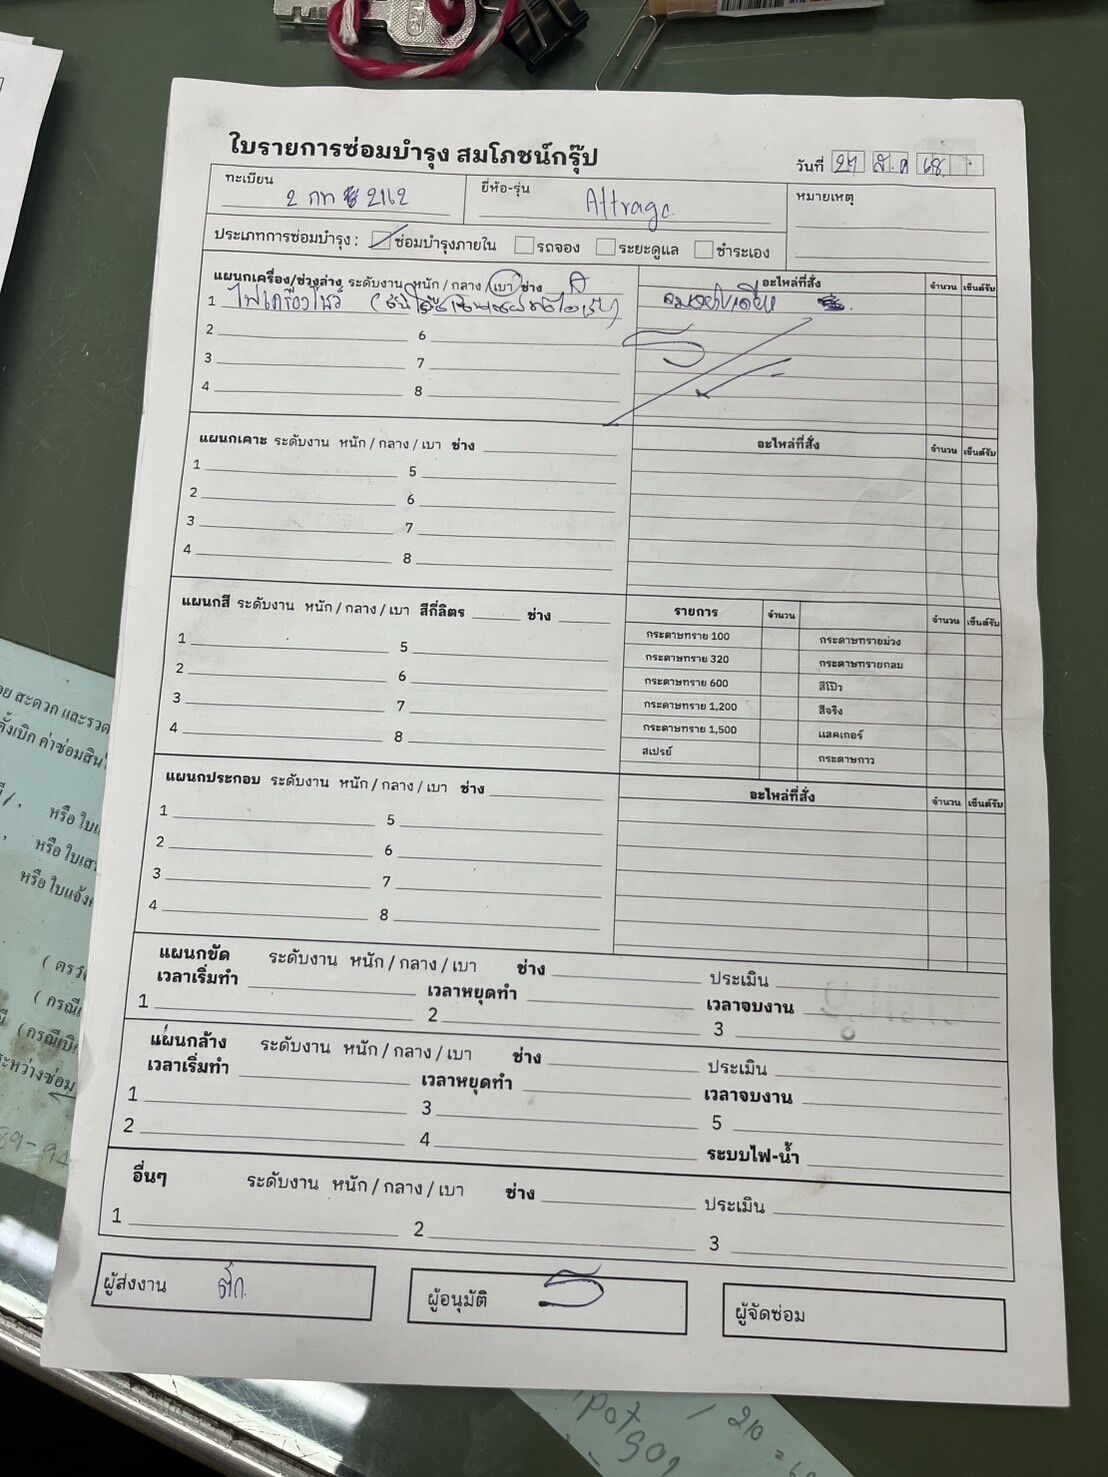 ใบรายการซ่อมบำรุง สมโภชน์กรุ๊ป
วันที่ 27 ส.ค 68
ทะเบียน 2 กท 2162
ยี่ห้อ-รุ่น Attrage
หมายเหตุ
ประเภทการซ่อมบำรุง : ซ่อมบำรุงภายใน รถจอง ระยะดูแล ชำระเอง
แผนกเครื่อง/ช่วงล่าง ระดับงาน หนัก / กลาง / เบา ช่าง
อะไหล่ที่สั่ง จำนวน เซ็นต์รับ
1 ไฟเครื่องโชว์
2 6
3 7
4 8
แผนกเคาะ ระดับงาน หนัก / กลาง / เบา ช่าง
อะไหล่ที่สั่ง จำนวน เซ็นต์รับ
1 5
2 6
3 7
4 8
แผนกสี ระดับงาน หนัก / กลาง / เบา สีกี่ลิตร ช่าง
รายการ จำนวน จำนวน เซ็นต์รับ
1 5
2 6
3 7
4 8
กระดาษทราย 100 กระดาษทรายม่วง
กระดาษทราย 320 กระดาษทรายกลม
กระดาษทราย 600 สีโป๊ว
กระดาษทราย 1,200 สีจริง
กระดาษทราย 1,500 แลคเกอร์
สเปรย์ กระดาษกาว
แผนกประกอบ ระดับงาน หนัก / กลาง / เบา ช่าง
อะไหล่ที่สั่ง จำนวน เซ็นต์รับ
1 5
2 6
3 7
4 8
แผนกขัด ระดับงาน หนัก / กลาง / เบา ช่าง ประเมิน
เวลาเริ่มทำ เวลาหยุดทำ เวลาจบงาน
1 2 3
แผ่นกล้าง ระดับงาน หนัก / กลาง / เบา ช่าง ประเมิน
เวลาเริ่มทำ เวลาหยุดทำ เวลาจบงาน
1 3 5
2 4 ระบบไฟ-น้ำ
อื่นๆ ระดับงาน หนัก / กลาง / เบา ช่าง ประเมิน
1 2 3
ผู้ส่งงาน
ผู้อนุมัติ
ผู้จัดซ่อม
สะดวก และรวด
ตั้งเบิก ค่าซ่อมสิน
หรือ ใบ
หรือ ใบเส
หรือ ใบแจ้ง
( ตรว
( กรณี
(กรณีเบิก
ระหว่างซ่อม
89-94
/ 210